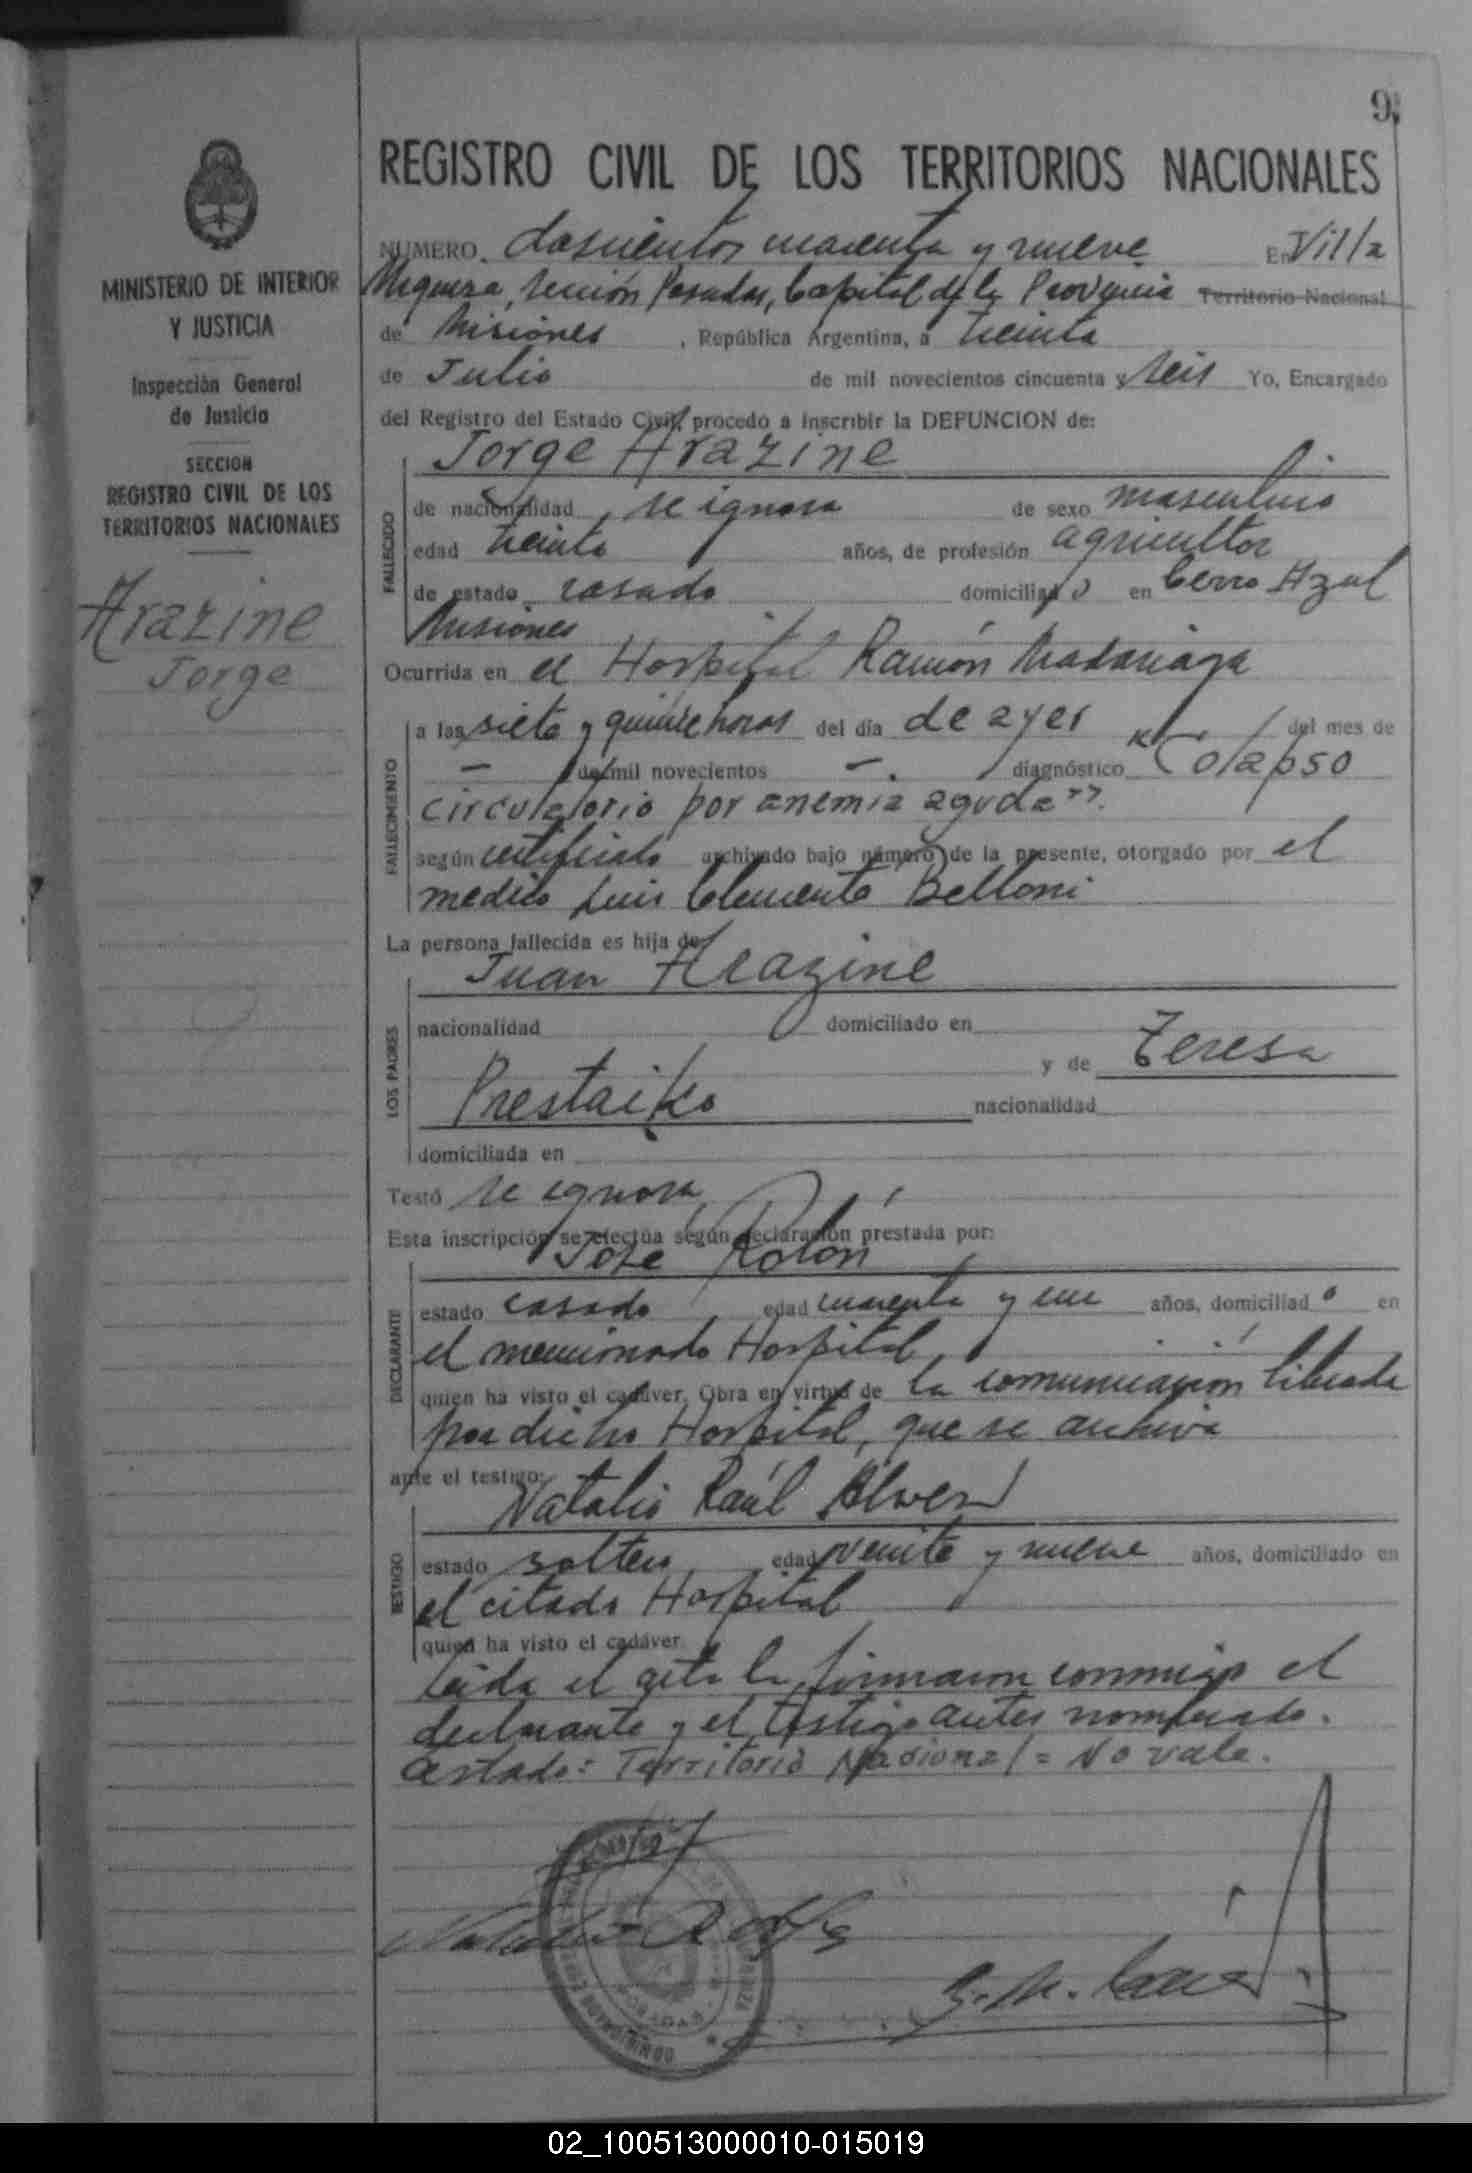 9
REGISTRO CIVIL DE LOS TERRITORIOS NACIONALES
MINISTERIO DE INTERIOR
Y JUSTICIA
Inspección General
de Justicia
SECCION
REGISTRO CIVIL DE LOS
TERRITORIOS NACIONALES
Arazine
Jorge
NUMERO doscientos cuarenta y nueve En Villa
Miguesa, sección Posadas, Capital de la Provincia Territorio Nacional
de Misiones, República Argentina, a treinta
de Julio de mil novecientos cincuenta y seis Yo, Encargado
del Registro del Estado Civil, procedo a inscribir la DEFUNCION de:
Jorge Arazine
FALLECIDO
de nacionalidad se ignora de sexo masculino
edad treinta años, de profesión agricultor
de estado casado domiciliado en Cerro Azul
Misiones
Ocurrida en el Hospital Ramón Madariaga
FALLECIMIENTO
a las siete y quince horas del día de ayer del mes de
— de mil novecientos —. diagnóstico "Colapso
circulatorio por anemia aguda".
según certificado archivado bajo número de la presente, otorgado por el
medico Luis Clemente Belloni
La persona fallecida es hija de
LOS PADRES
Juan Arazine
nacionalidad domiciliado en
y de Teresa
Prestaiko nacionalidad
domiciliada en
Testó se ignora
Esta inscripción se efectúa según declaración prestada por:
DECLARANTE
José Rolón
estado casado edad cuarenta y un años, domiciliado en
el mencionado Hospital
quien ha visto el cadáver. Obra en virtud de la comunicación librada
por dicho Hospital, que se archiva
ante el testigo:
TESTIGO
Natalio Raúl
estado soltero edad veinte y nueve años, domiciliado en
el citado Hospital
quien ha visto el cadáver.
Leida el acta la firmaron conmigo el
declarante y el testigo antes nombrado.
Testado: Territorio Nacional = No vale.
02_100513000010-015019